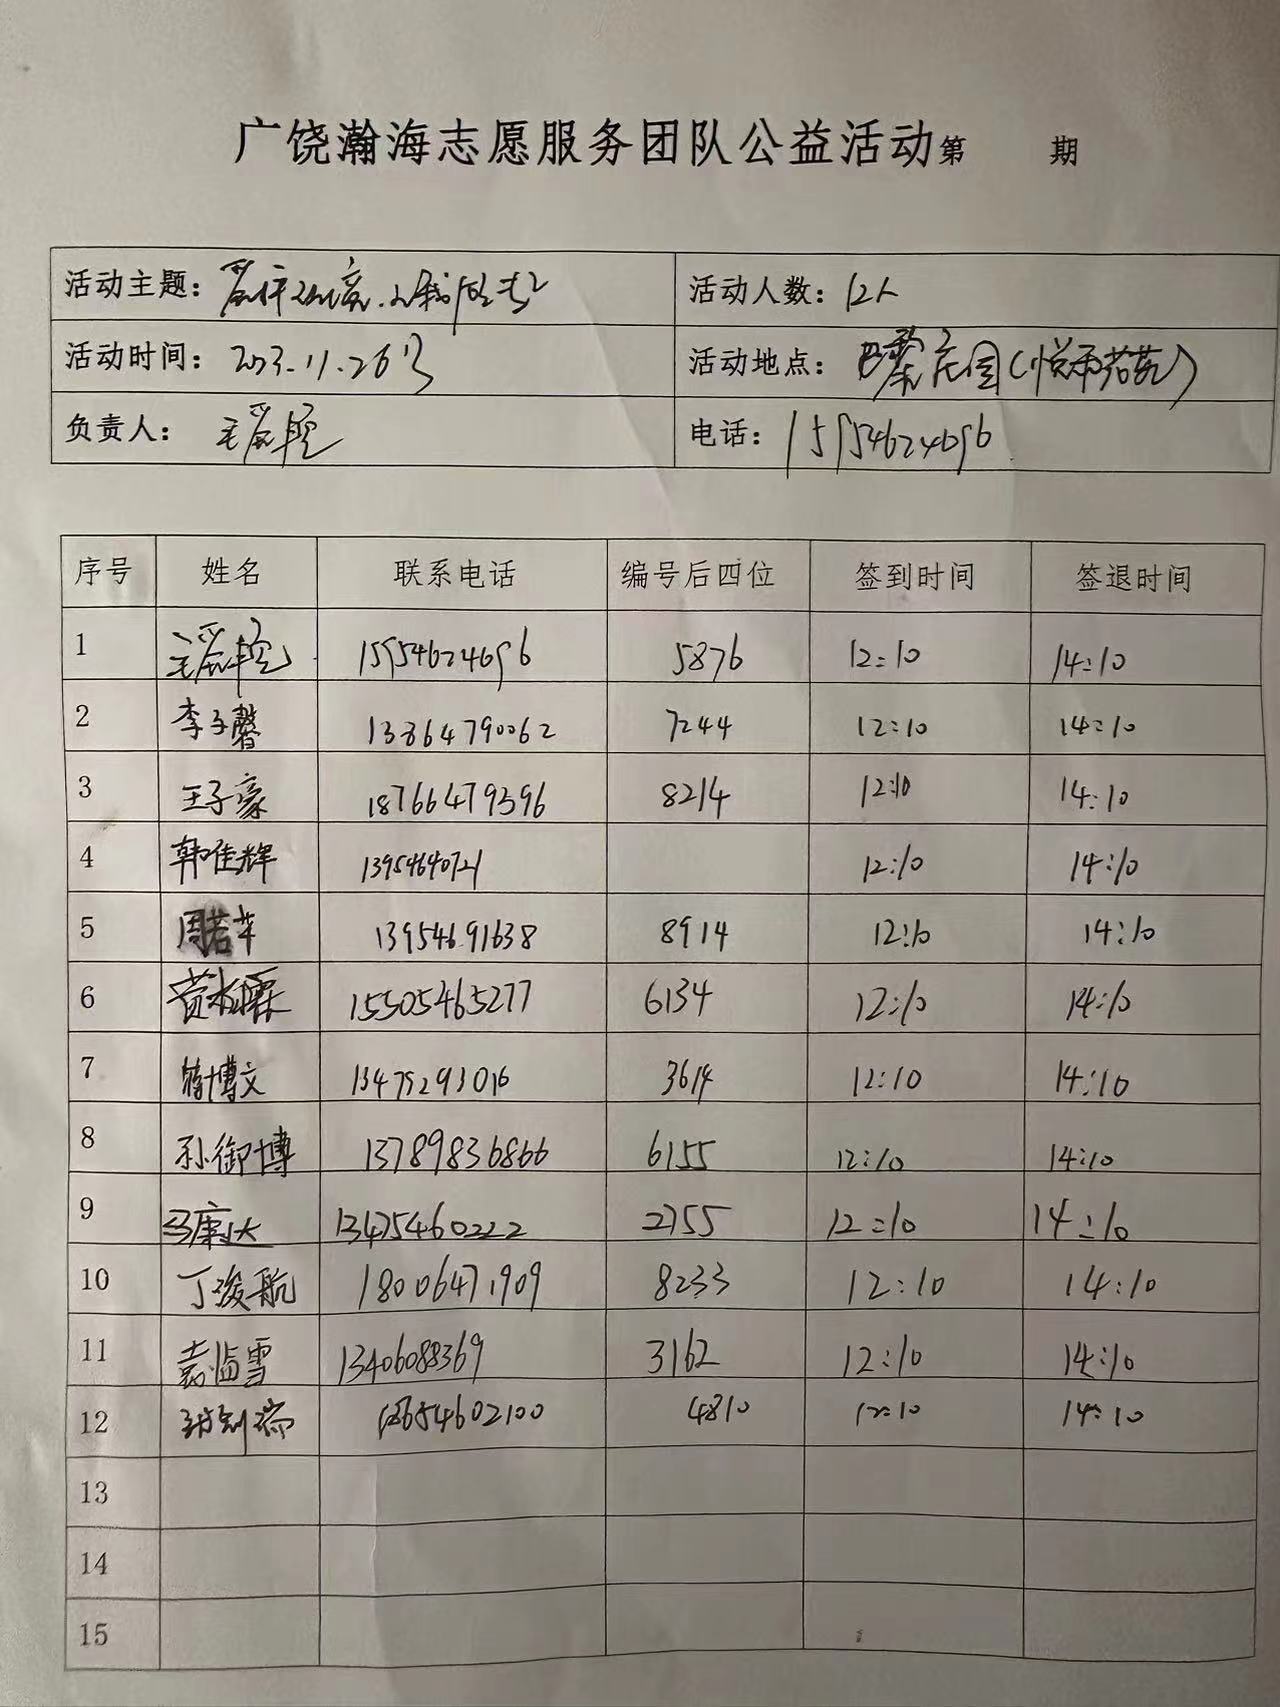 广饶瀚海志愿服务团队公益活动第 期
活动主题： 活动人数：12人
活动时间：2023.11.26号 活动地点：
负责人： 电话：15954624696
序号 姓名 联系电话 编号后四位 签到时间 签退时间
1 15954624696 5876 12:10 14:10
2 李子馨 13864790062 7244 12:10 14:10
3 王子豪 18766479396 8214 12:10 14:10
4 韩佳辉 13954640721 12:10 14:10
5 周若芊 13954691638 8914 12:10 14:10
6 15505465277 6134 12:10 14:10
7 博文 13475293016 3614 12:10 14:10
8 孙御博 13789836866 6155 12:10 14:10
9 马康达 13475460222 2755 12:10 14:10
10 丁浚航 18006471909 8233 12:10 14:10
11 13406088369 3162 12:10 14:10
12 4810 12:10 14:10
13
14
15